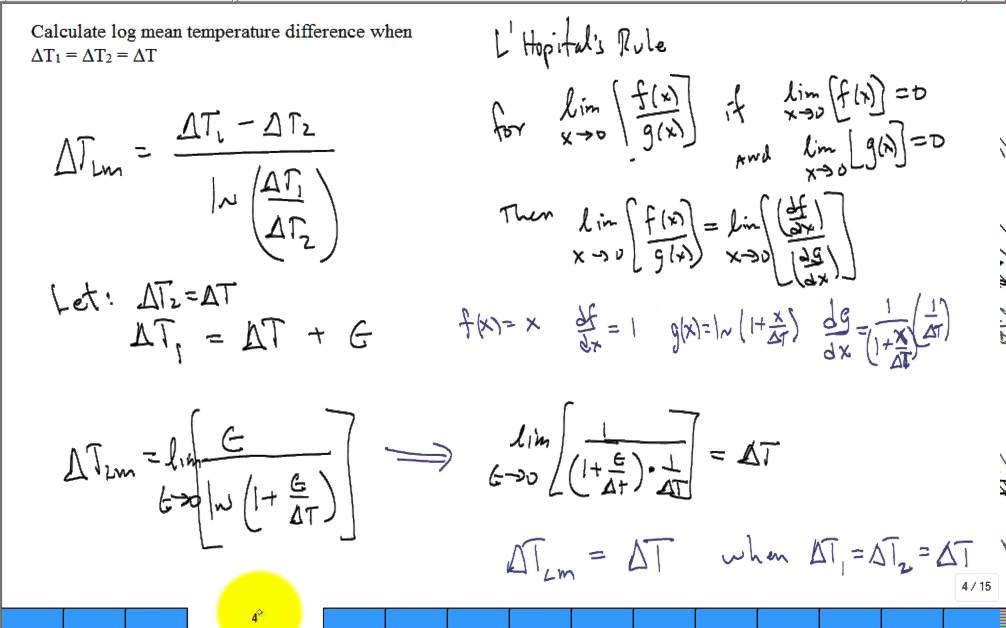 Calculate log mean temperature difference when
ΔT1 = ΔT2 = ΔT
ΔT_Lm = (ΔT1 - ΔT2) / ln(ΔT1/ΔT2)
Let: ΔT2 = ΔT
ΔT1 = ΔT + ε
ΔT_Lm = lim ε→0 [ε / ln(1 + ε/ΔT)] ⇒
L'Hopital's Rule
for lim x→0 [f(x)/g(x)] if lim x→0 [f(x)] = 0
and lim x→0 [g(x)] = 0
Then lim x→0 [f(x)/g(x)] = lim x→0 [(df/dx)/(dg/dx)]
f(x) = x df/dx = 1 g(x) = ln(1 + x/ΔT) dg/dx = 1/(1 + x/ΔT) (1/ΔT)
lim ε→0 [1 / ((1 + ε/Δt) · 1/ΔT)] = ΔT
ΔT_Lm = ΔT when ΔT1 = ΔT2 = ΔT
4 / 15
4